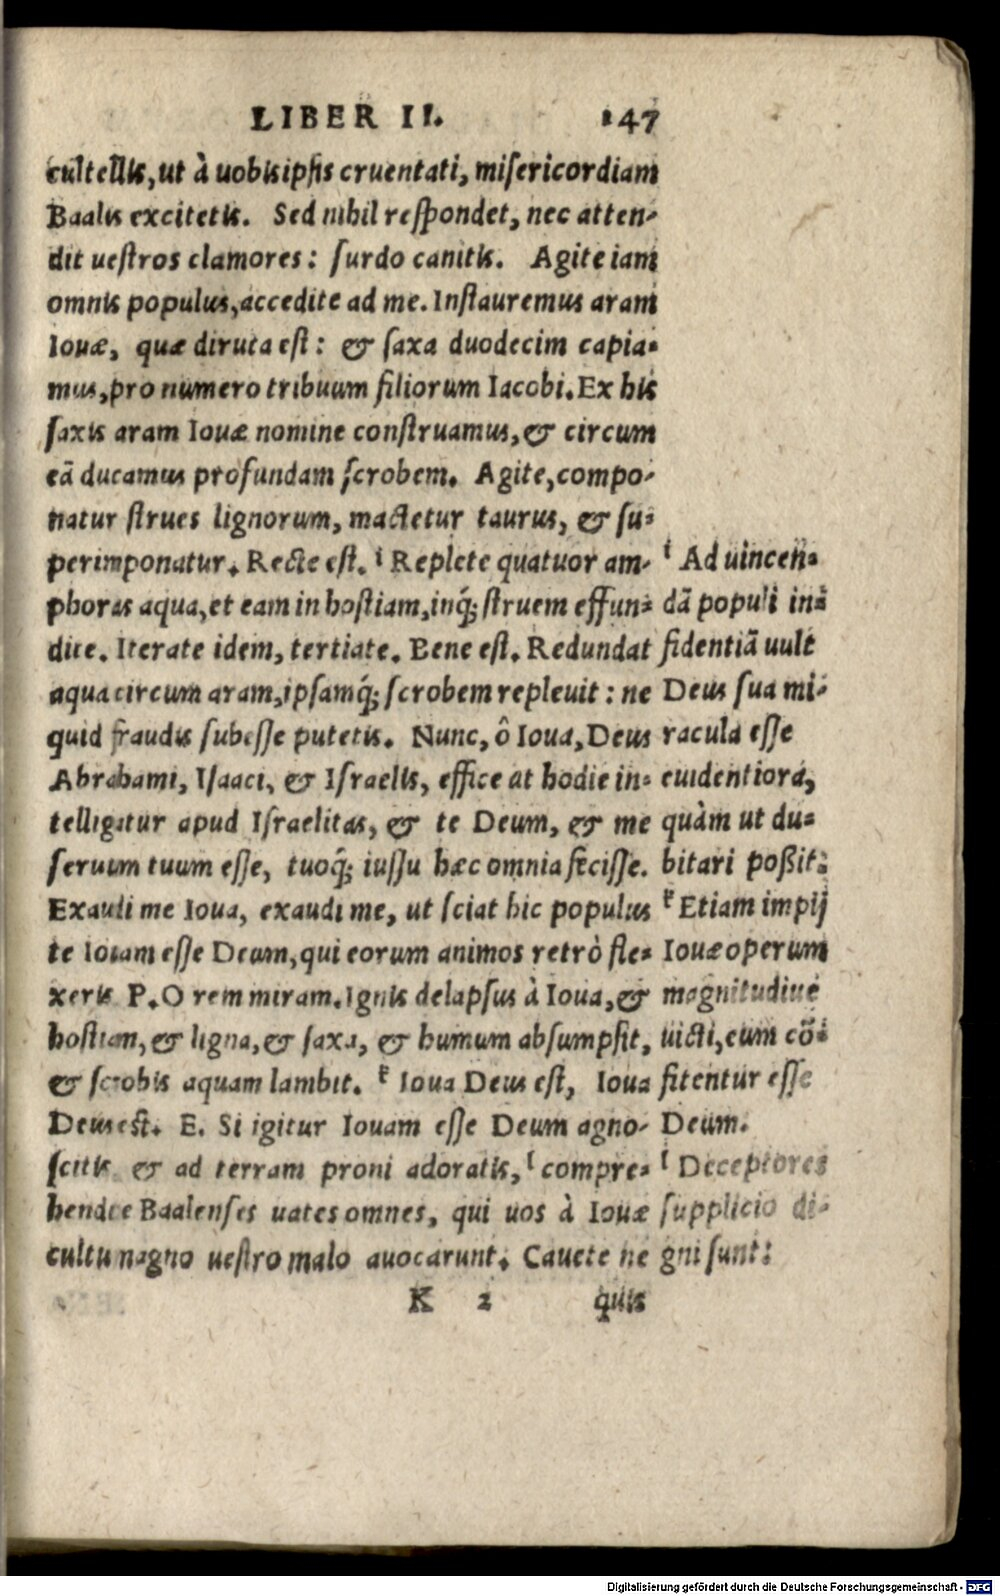 LIBER II. 147
cultellis, ut à uobisipsis cruentati, misericordiam
Baalis excitetis. Sed nihil respondet, nec atten-
dit uestros clamores: surdo canitis. Agite iam
omnis populus, accedite ad me. Instauremus aram
Iouæ, quæ diruta est: & saxa duodecim capia-
mus, pro numero tribuum filiorum Iacobi. Ex his
saxis aram Iouæ nomine construamus, & circum
eā ducamus profundam scrobem. Agite, compo-
natur strues lignorum, mactetur taurus, & su-
perimponatur. Recte est. i Replete quatuor am-
phoras aqua, et eam in hostiam, inq; struem effun-
dite. Iterate idem, tertiate. Bene est. Redundat
aqua circum aram, ipsamq; scrobem repleuit: ne
quid fraudis subesse putetis. Nunc, ô Ioua, Deus
Abrahami, Isaaci, & Israelis, effice ut hodie in-
telligatur apud Israelitas, & te Deum, & me
seruum tuum esse, tuoq; iussu hæc omnia fecisse.
Exaudi me Ioua, exaudi me, ut sciat hic populus
te Iouam esse Deum, qui eorum animos retrò fle-
xeris P. O rem miram. Ignis delapsus à Ioua, &
hostiam, & ligna, & saxa, & humum absumpsit,
& scrobis aquam lambit. k Ioua Deus est, Ioua
Deus est. E. Si igitur Iouam esse Deum agno-
scitis & ad terram proni adoratis, l compre-
hendite Baalenses uates omnes, qui uos à Iouæ
cultu magno uestro malo auocarunt. Cauete ne
K 2 quis
i Ad uincen-
dā populi in-
fidentiā uult
Deus sua mi-
racula esse
euidentiora,
quàm ut du-
bitari possit:
k Etiam impij
Iouæ operum
magnitudine
uicti, eum cō-
fitentur esse
Deum.
l Deceptores
supplicio di-
gni sunt:
Digitalisierung gefördert durch die Deutsche Forschungsgemeinschaft - DFG